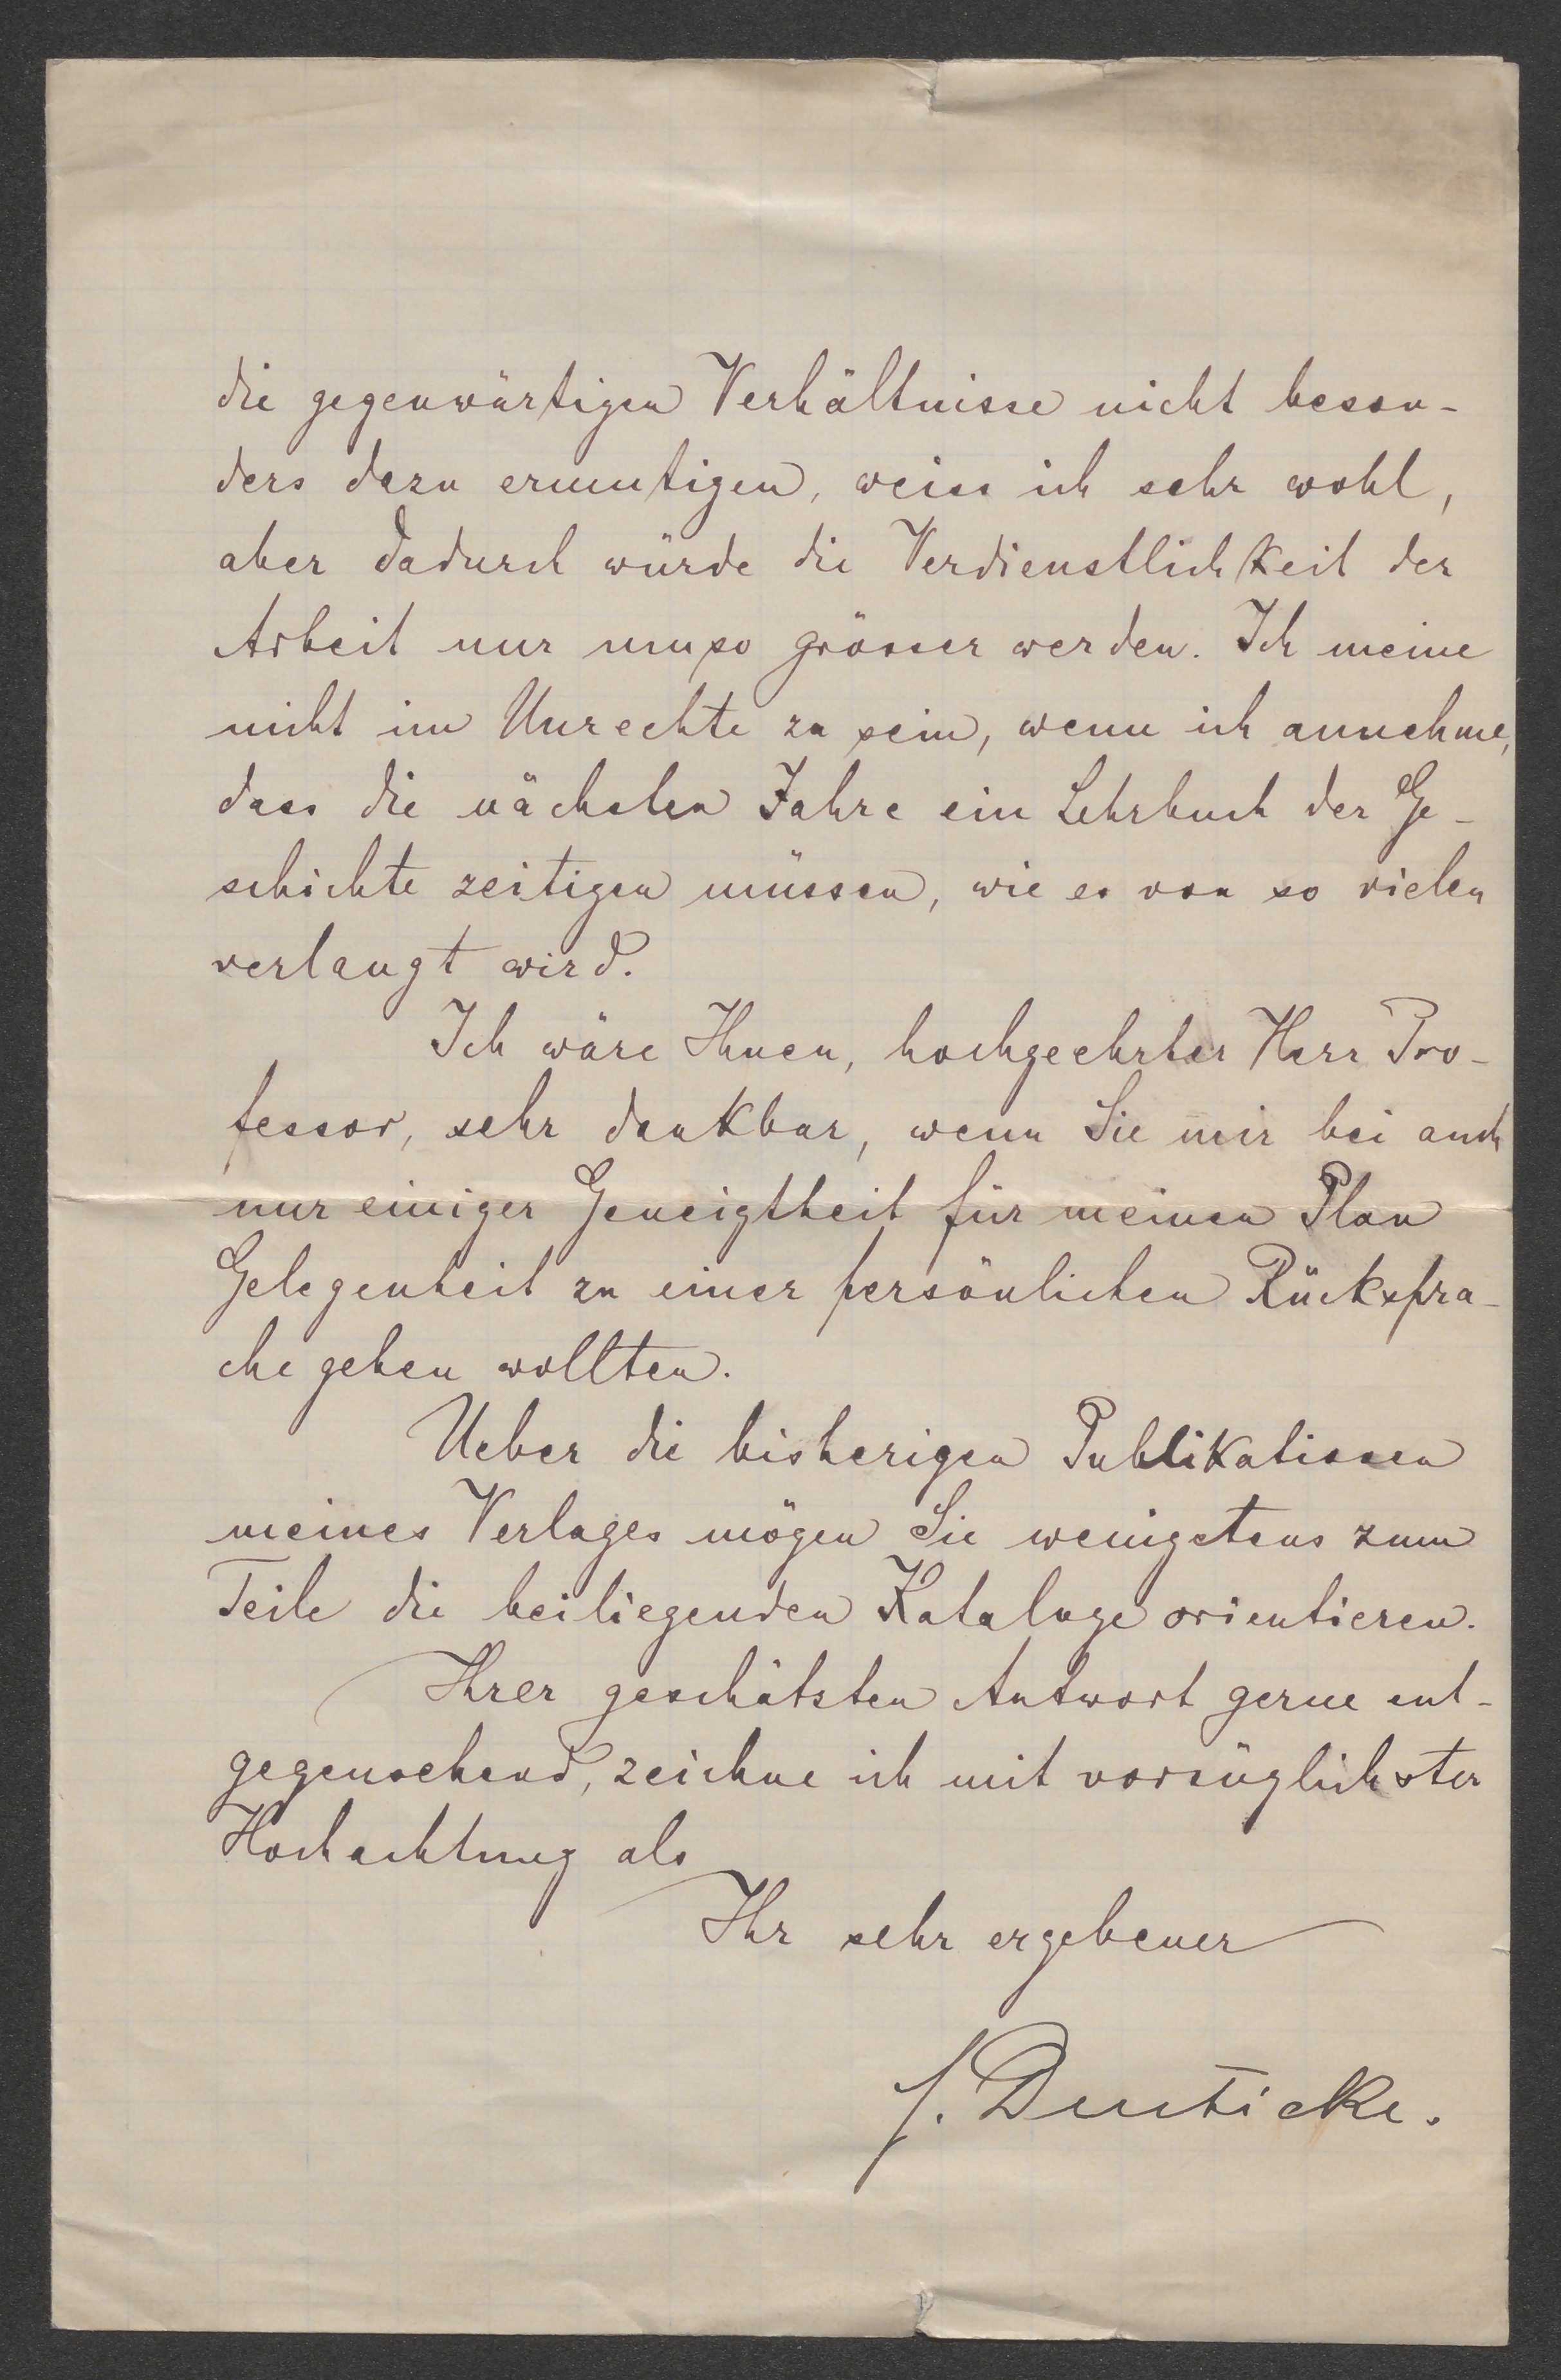 die gegenwärtigen Verhältnisse nicht beson-
ders dazu ermutigen, weiss ich sehr wohl,
aber dadurch würde die Verdienstlichkeit der
Arbeit nur umso grösser werden. Ich meine
nicht im Unrechte zu sein, wenn ich annehme,
dass die nächsten Jahre ein Lehrbuch der Ge-
schichte zeitigen müssen, wie es von so vielen
verlangt wird.
Ich wäre Ihnen, hochgeehrter Herr Pro-
fessor, sehr dankbar, wenn Sie mir bei auch
nur einiger Geneigtheit für meinen Plan
Gelegenheit zu einer persönlichen Rückspra-
che geben wollten.
Ueber die bisherigen Publikationen
meines Verlages mögen Sie wenigstens zum
Teile die beiliegenden Kataloge orientieren.
Ihrer geschätzten Antwort gerne ent-
gegensehend, zeichne ich mit vorzüglichster
Hochachtung als
Ihr sehr ergebener
F. Deuticke.